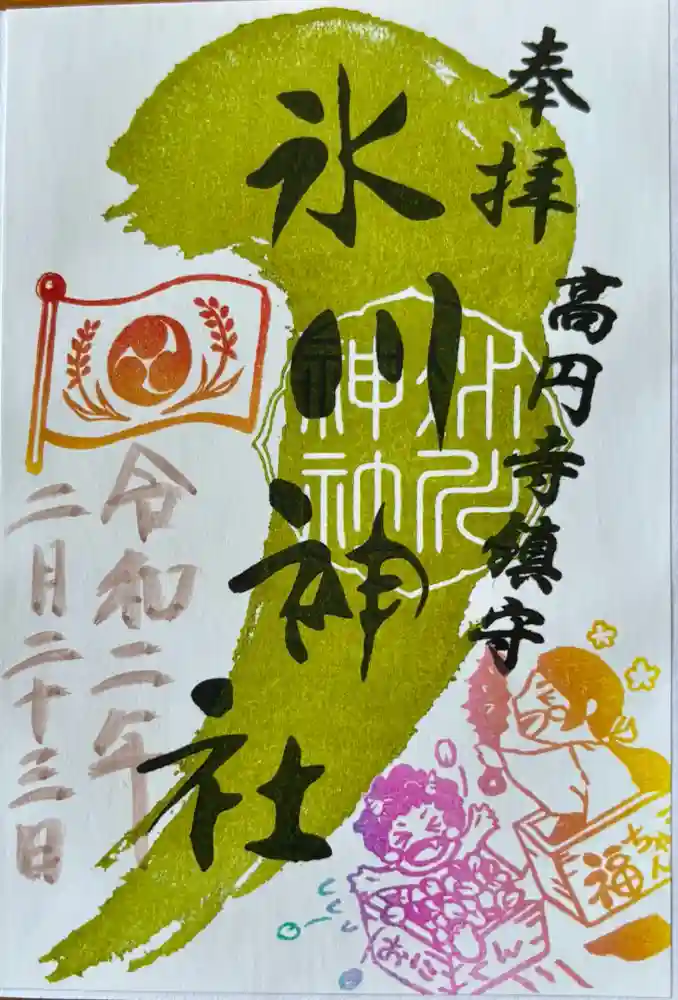 奉拝
高円寺鎮守
氷川神社
氷川
神社
令和二年
二月二十三日
福ちゃん
おにくん